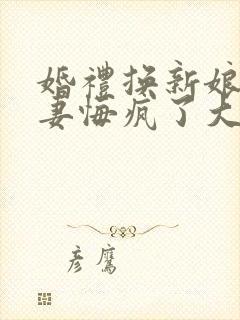 婚禮換新娘
妻悔瘋了大
彥鷹